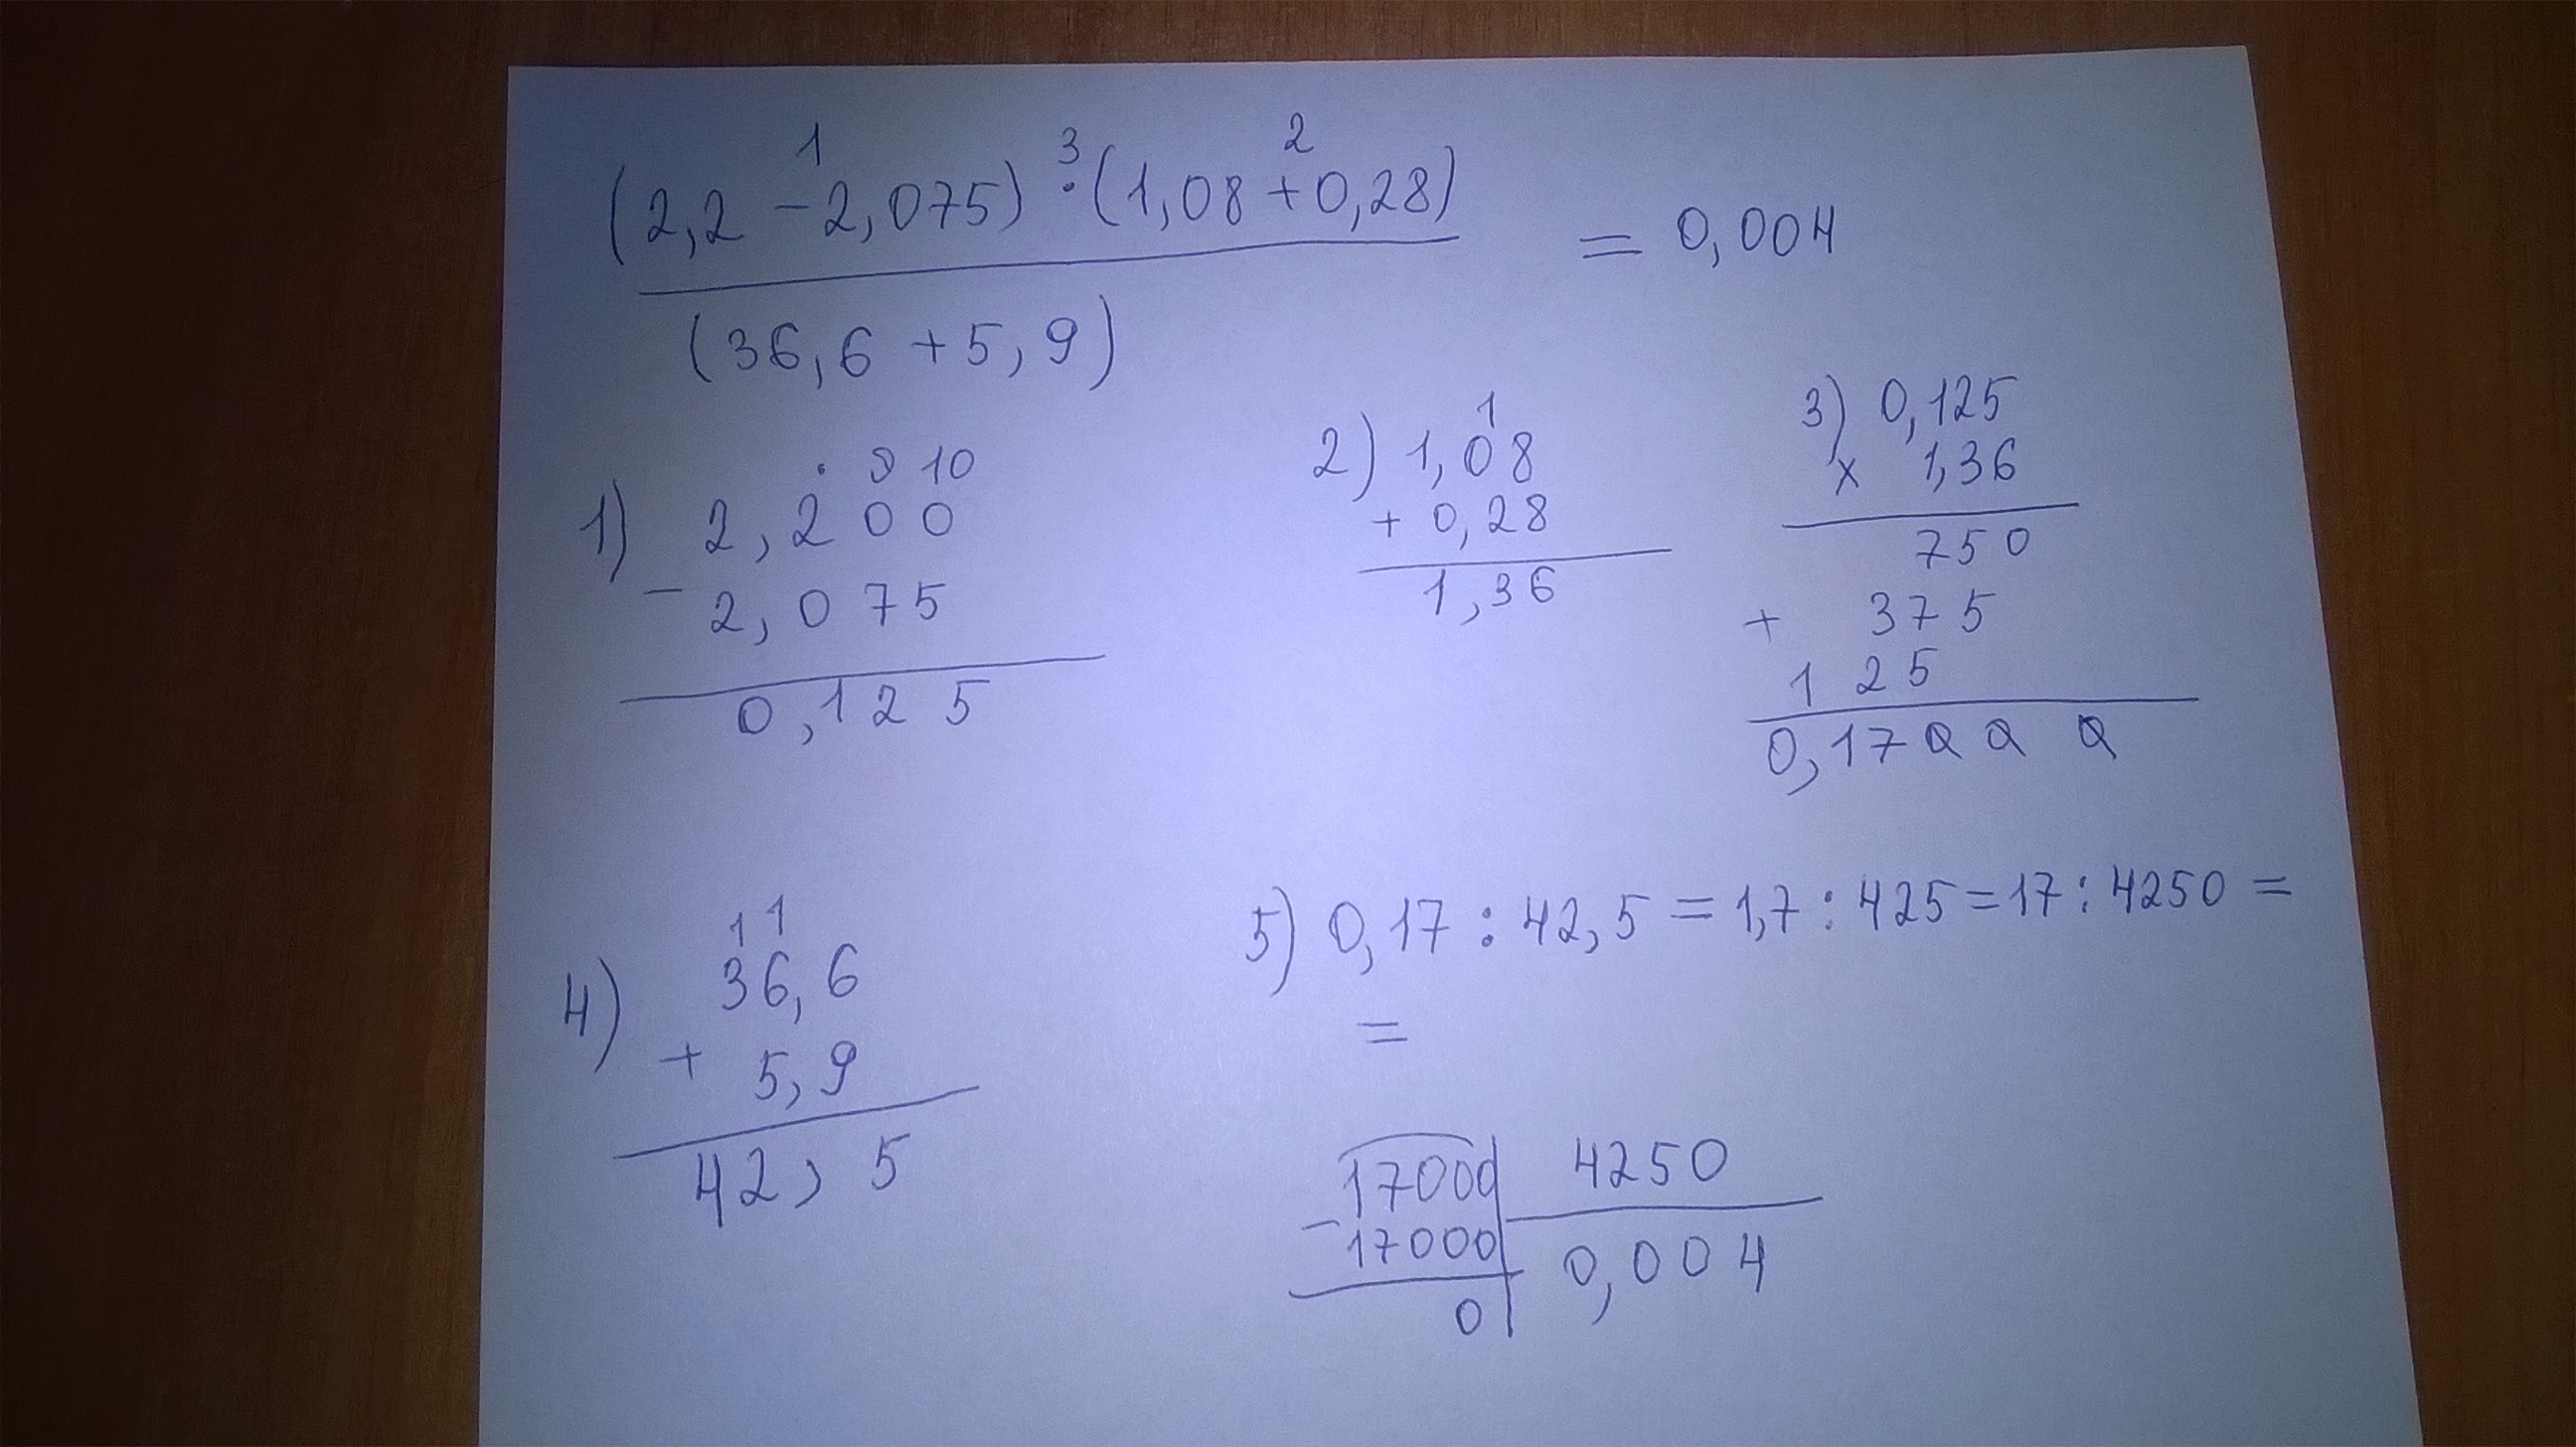 1 3 2
(2,2 - 2,075) · (1,08 + 0,28)
= 0,004
(36,6 + 5,9)
1)
· 9 10
2,200
- 2,075
0,125
2)
1
1,08
+ 0,28
1,36
3) 0,125
x 1,36
750
+ 375
125
0,17000
4)
1 1
36,6
+ 5,9
42,5
5) 0,17 : 42,5 = 1,7 : 425 = 17 : 4250 =
=
17000 4250
- 17000 0,004
0